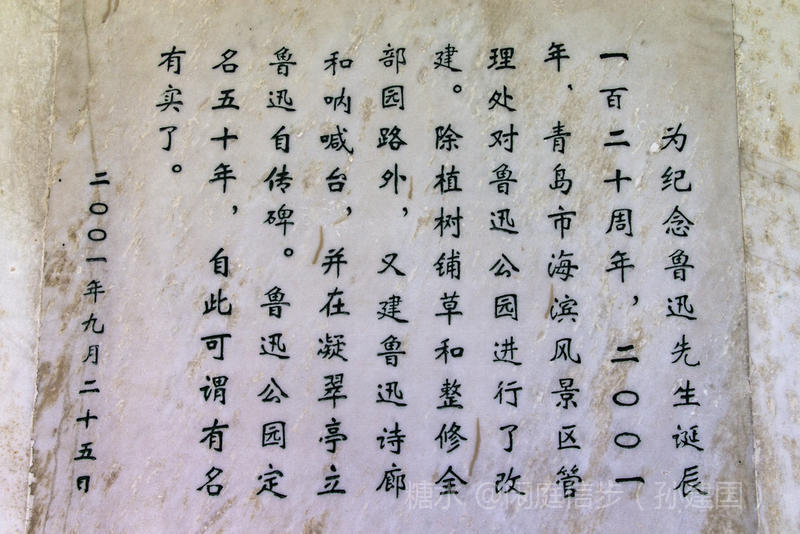 为纪念鲁迅先生诞辰
一百二十周年，二〇〇一
年、青岛市海滨风景区管
理处对鲁迅公园进行了改
建。除植树铺草和整修全
部园路外，又建鲁迅诗廊
和呐喊台，并在凝翠亭立
鲁迅自传碑。鲁迅公园定
名五十年，自此可谓有名
有实了。
二〇〇一年九月二十五日
糖水 @闲庭信步（孙建国）